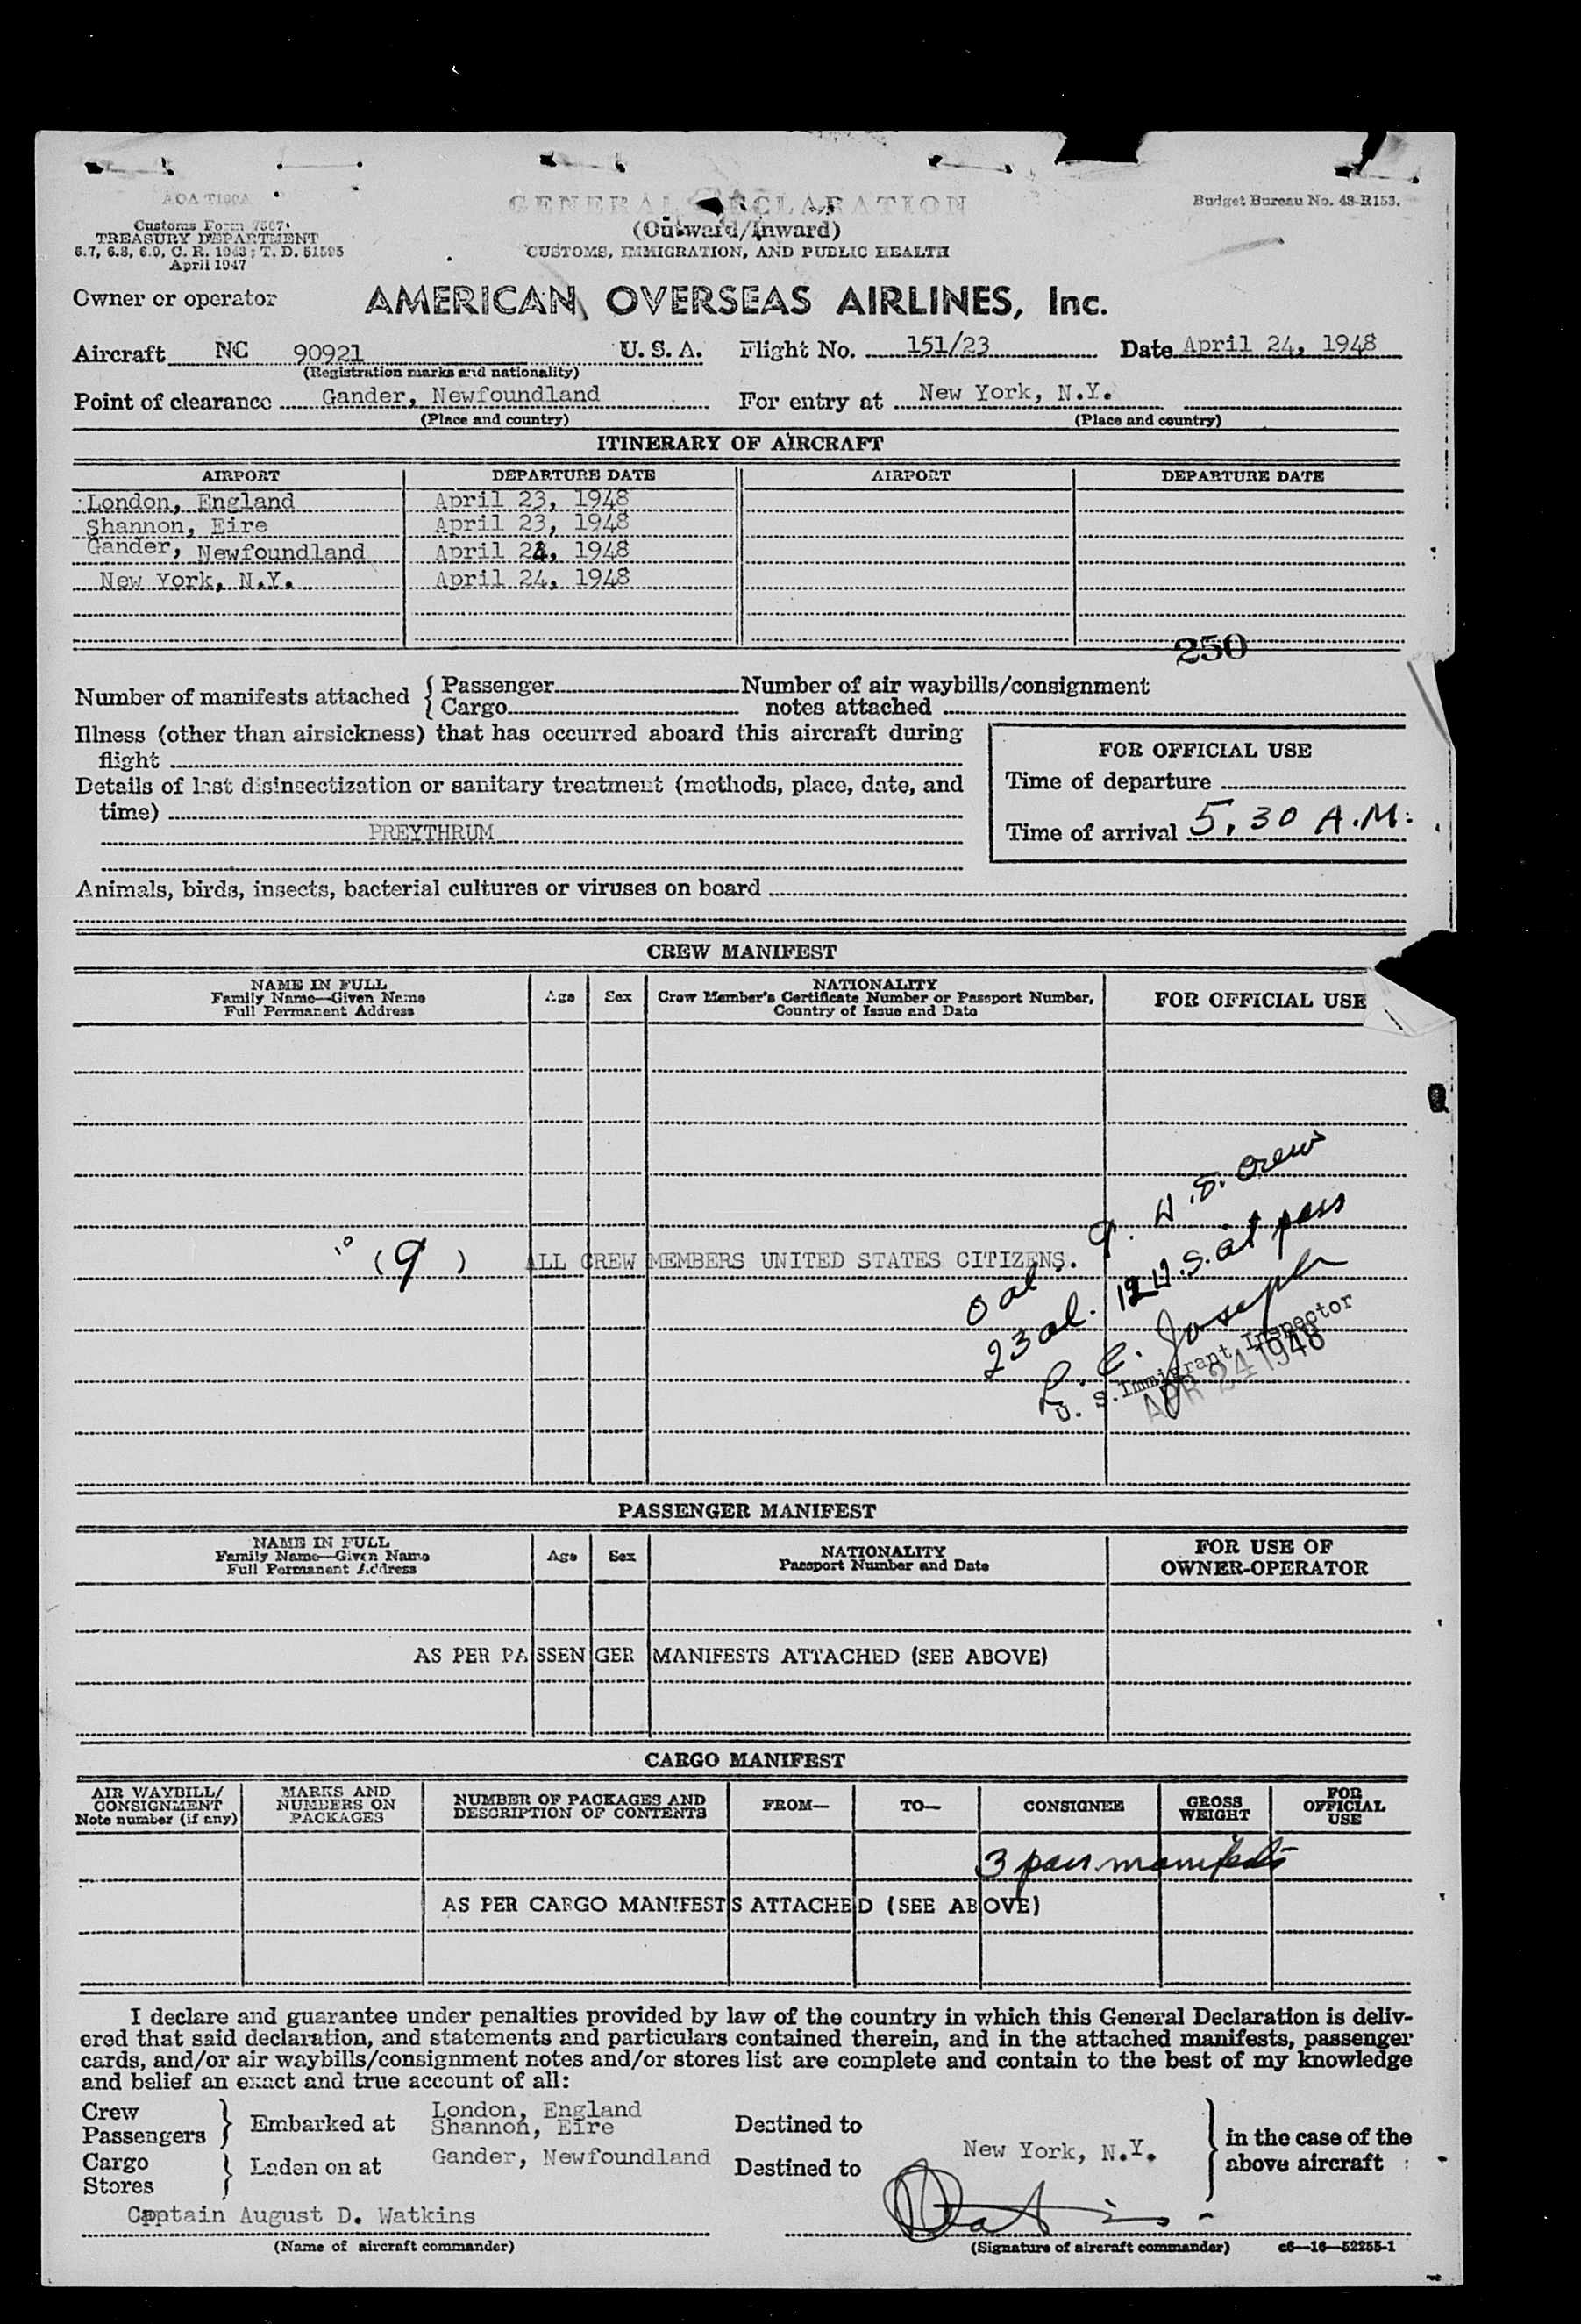 GENERAL DECLARATION
(Outward/Inward)
CUSTOMS, IMMIGRATION, AND PUBLIC HEALTH
Budget Bureau No. 48-R153.
Customs Form 7507
TREASURY DEPARTMENT
6.7, 6.8, 6.9, C. R. 1943; T. D. 51595
April 1947
Owner or operator AMERICAN OVERSEAS AIRLINES, Inc.
Aircraft NC 90921 U. S. A. Flight No. 151/23 Date April 24, 1948
(Registration marks and nationality)
Point of clearance Gander, Newfoundland For entry at New York, N.Y.
(Place and country) (Place and country)
ITINERARY OF AIRCRAFT
AIRPORT DEPARTURE DATE AIRPORT DEPARTURE DATE
London, England April 23, 1948
Shannon, Eire April 23, 1948
Gander, Newfoundland April 24, 1948
New York, N.Y. April 24, 1948
250
Number of manifests attached { Passenger Number of air waybills/consignment
Cargo notes attached
Illness (other than airsickness) that has occurred aboard this aircraft during
flight
Details of last disinsectization or sanitary treatment (methods, place, date, and
time)
PREYTHRUM
FOR OFFICIAL USE
Time of departure
Time of arrival 5.30 A.M.
Animals, birds, insects, bacterial cultures or viruses on board
CREW MANIFEST
NAME IN FULL
Family Name—Given Name
Full Permanent Address
Age Sex
NATIONALITY
Crew Member's Certificate Number or Passport Number,
Country of Issue and Date
FOR OFFICIAL USE
10 (9) ALL CREW MEMBERS UNITED STATES CITIZENS.
9. U.S. Crew
0 al. 12 U.S. cit pass
23 al.
L. E. Joseph
U. S. Immigrant Inspector
APR 24 1948
PASSENGER MANIFEST
NAME IN FULL
Family Name—Given Name
Full Permanent Address
Age Sex
NATIONALITY
Passport Number and Date
FOR USE OF
OWNER-OPERATOR
AS PER PASSENGER MANIFESTS ATTACHED (SEE ABOVE)
CARGO MANIFEST
AIR WAYBILL/
CONSIGNMENT
Note number (if any)
MARKS AND
NUMBERS ON
PACKAGES
NUMBER OF PACKAGES AND
DESCRIPTION OF CONTENTS
FROM—
TO—
CONSIGNEE
GROSS
WEIGHT
FOR
OFFICIAL
USE
3 pass. manifests
AS PER CARGO MANIFESTS ATTACHED (SEE ABOVE)
I declare and guarantee under penalties provided by law of the country in which this General Declaration is deliv-
ered that said declaration, and statements and particulars contained therein, and in the attached manifests, passenger
cards, and/or air waybills/consignment notes and/or stores list are complete and contain to the best of my knowledge
and belief an exact and true account of all:
Crew
Passengers } Embarked at London, England
Shannon, Eire
Destined to
Cargo
Stores } Laden on at Gander, Newfoundland
Destined to
New York, N.Y.
} in the case of the
above aircraft :
Captain August D. Watkins
(Name of aircraft commander) (Signature of aircraft commander) c6—16—52255-1